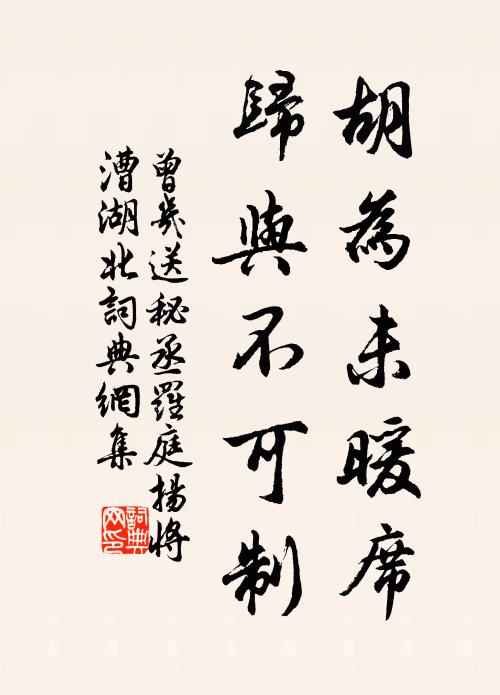 胡為未暖席
歸與不可制
曾幾送秘丞羅庭揚將
漕湖北詞典網集
詞典
网印